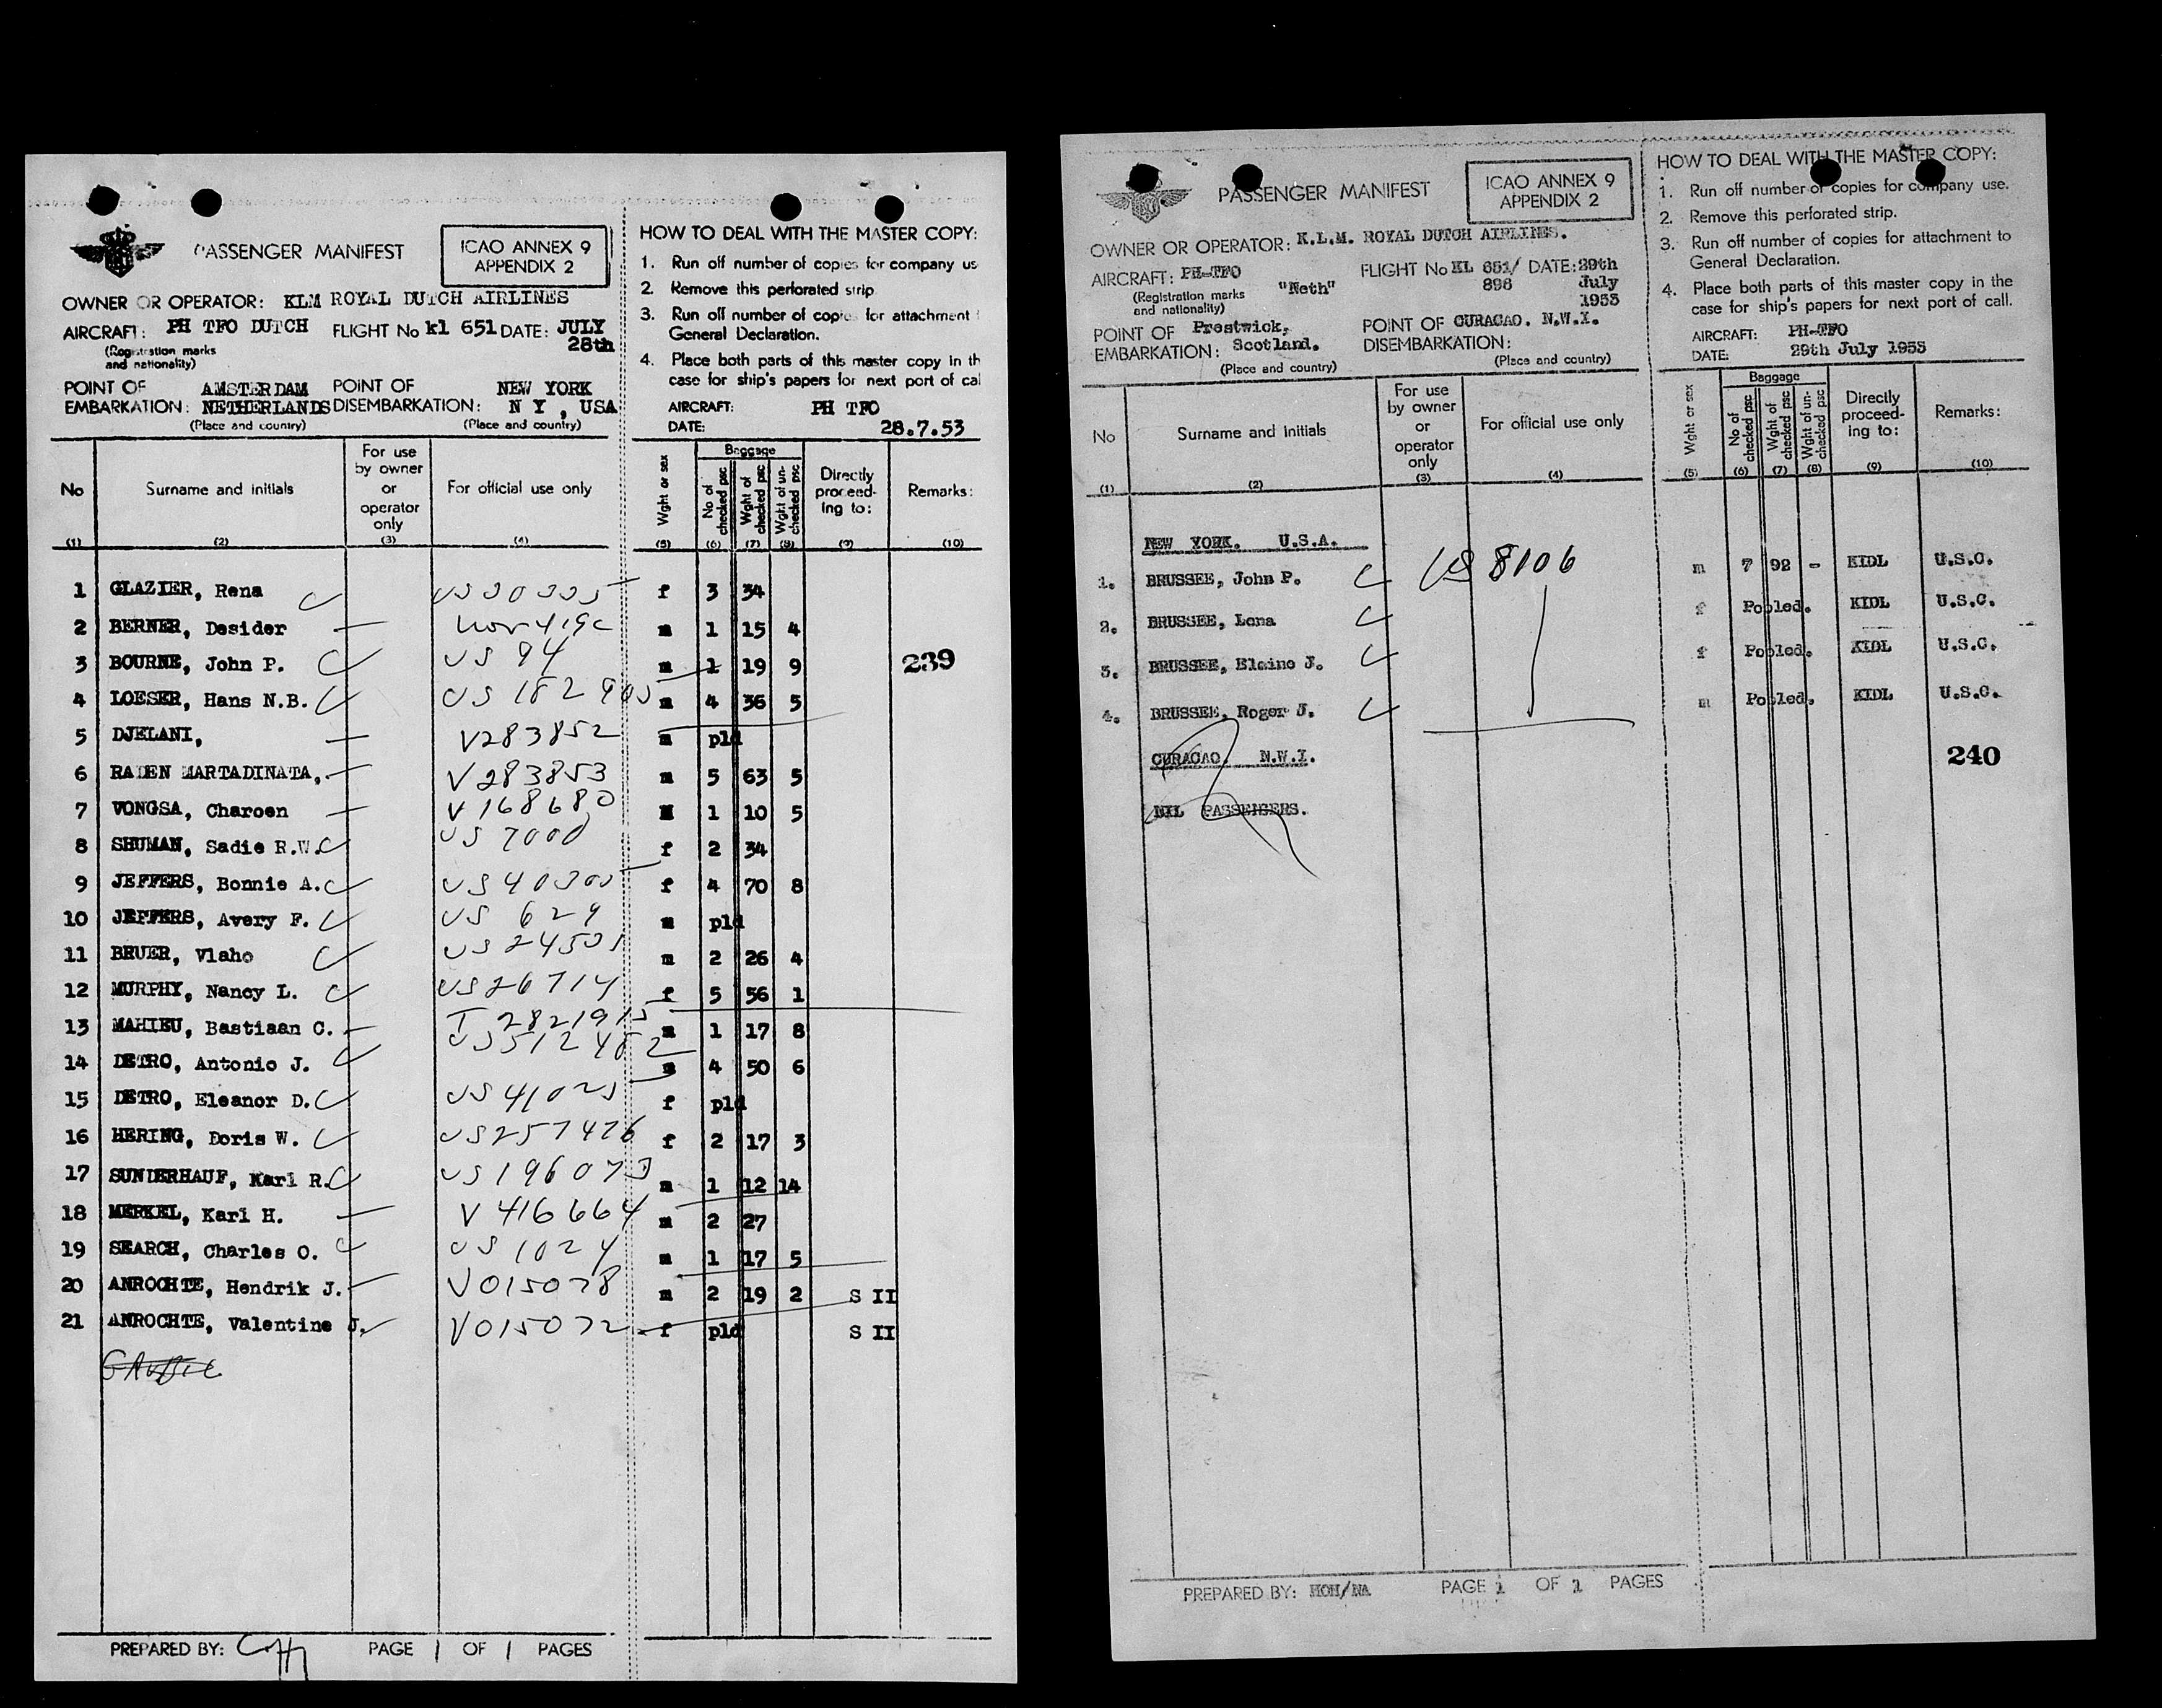 PASSENGER MANIFEST
ICAO ANNEX 9
APPENDIX 2
OWNER OR OPERATOR: KLM ROYAL DUTCH AIRLINES
AIRCRAFT: PH TFO DUTCH FLIGHT No kl 651 DATE: JULY
28th
(Registration marks
and nationality)
POINT OF AMSTERDAM POINT OF NEW YORK
EMBARKATION: NETHERLANDS DISEMBARKATION: N Y , USA
(Place and country) (Place and country)
HOW TO DEAL WITH THE MASTER COPY:
1. Run off number of copies for company us
2. Remove this perforated strip
3. Run off number of copies for attachment
General Declaration.
4. Place both parts of this master copy in th
case for ship's papers for next port of cal
AIRCRAFT: PH TFO
DATE: 28.7.53
No Surname and initials For use by owner or operator only For official use only Wght or sex Baggage No of checked psc Wght of checked psc Wght of un-checked psc Directly proceed-ing to: Remarks:
(1) (2) (3) (4) (5) (6) (7) (8) (9) (10)
1 GLAZIER, Rena f 3 34
2 BERNER, Desider m 1 15 4
3 BOURNE, John P. US 94 m 1 19 9
239
4 LOESER, Hans N.B. m 4 36 5
5 DJELANI, V283852 m pld
6 RADEN MARTADINATA, V283853 m 5 63 5
7 VONGSA, Charoen V168680 M 1 10 5
8 SHUMAN, Sadie R.W. US 7000 f 2 34
9 JEFFERS, Bonnie A. f 4 70 8
10 JEFFERS, Avery F. US 629 m pld
11 BRUER, Vlaho m 2 26 4
12 MURPHY, Nancy L. US26714 f 5 56 1
13 MAHIEU, Bastiaan C. m 1 17 8
14 DETRO, Antonio J. m 4 50 6
15 DETRO, Eleanor D. f pld
16 HERING, Doris W. US257476 f 2 17 3
17 SUNDERHAUF, Karl R. m 1 12 14
18 MERKEL, Karl H. V 416664 m 2 27
19 SEARCH, Charles O. US 1024 m 1 17 5
20 ANROCHTE, Hendrik J. V015078 m 2 19 2 S II
21 ANROCHTE, Valentine J. V015072 f pld S II
PREPARED BY: PAGE 1 OF 1 PAGES
PASSENGER MANIFEST
ICAO ANNEX 9
APPENDIX 2
OWNER OR OPERATOR: K.L.M. ROYAL DUTCH AIRLINES.
AIRCRAFT: PH-TFO "Neth" FLIGHT No KL 651/ DATE: 29th
898 July
1953
(Registration marks
and nationality)
POINT OF Prestwick, POINT OF CURACAO. N.W.I.
EMBARKATION: Scotland. DISEMBARKATION:
(Place and country) (Place and country)
HOW TO DEAL WITH THE MASTER COPY:
1. Run off number of copies for company use.
2. Remove this perforated strip.
3. Run off number of copies for attachment to
General Declaration.
4. Place both parts of this master copy in the
case for ship's papers for next port of call.
AIRCRAFT: PH-TFO
DATE: 29th July 1953
No Surname and initials For use by owner or operator only For official use only Wght or sex Baggage No of checked psc Wght of checked psc Wght of un-checked psc Directly proceed-ing to: Remarks:
(1) (2) (3) (4) (5) (6) (7) (8) (9) (10)
NEW YORK. U.S.A.
1. BRUSSEE, John P. US 8106 m 7 92 - KIDL U.S.C.
2. BRUSSEE, Lena f Pooled. KIDL U.S.C.
3. BRUSSEE, Elaine J. f Pooled. KIDL U.S.C.
4. BRUSSEE, Roger J. m Pooled. KIDL U.S.C.
CURACAO. N.W.I.
240
NIL PASSENGERS.
PREPARED BY: HOH/NA PAGE 1 OF 1 PAGES